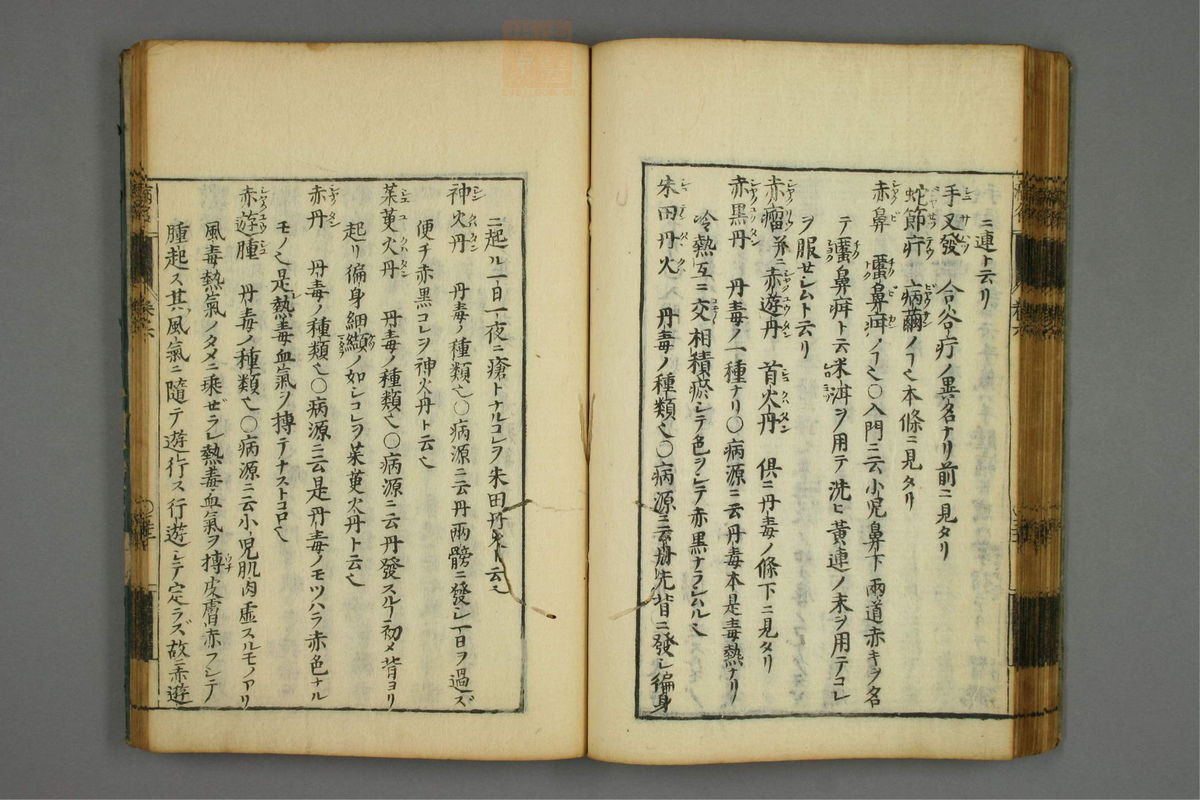 ニ連ト云リ
手叉發 合谷疔ノ異名ナリ前ニ見タリ
蛇節疔 病蠒ノヿ也本條ニ見タリ
赤鼻 䘌鼻疳ノヿ也〇入門ニ云小児鼻下兩道赤キヲ名
テ䘌鼻疳ト云米泔ヲ用テ洗ヒ黄連ノ末ヲ用テコレ
ヲ服セシムト云リ
赤瘤 并ニ赤遊丹 首火丹 倶ニ丹毒ノ條下ニ見タリ
赤黒丹 丹毒ノ一種ナリ〇病源ニ云丹毒本是毒熱ナリ
冷熱互ニ交相積瘀シテ色ヲシテ赤黒ナラシムル也
朱田丹火 丹毒ノ種類也〇病源ニ云丹先背ニ發シ徧身
ニ起ル一日一夜ニ瘡トナルコレヲ朱田丹火ト云也
神火丹 丹毒ノ種類也〇病源ニ云丹兩髈ニ發シ一日ヲ過ズ
便チ赤黒コレヲ神火丹ト云也
茱萸火丹 丹毒ノ種類也〇病源ニ云丹發スルヿ初メ背ヨリ
起リ徧身細纈ノ如シコレヲ茱萸火丹ト云也
赤丹 丹毒ノ種類也〇病源ニ云是丹毒ノモツハラ赤色ナル
モノ也是熱毒血氣ヲ摶テナストコロ也
赤遊腫 丹毒ノ種類也〇病源ニ云小児肌肉虚スルモノアリ
風毒熱氣ノタメニ乗ゼラレ熱毒血氣ヲ摶皮膚赤フシテ
腫起ス其風氣ニ隨テ遊行ス行遊シテ定ラズ故ニ赤遊